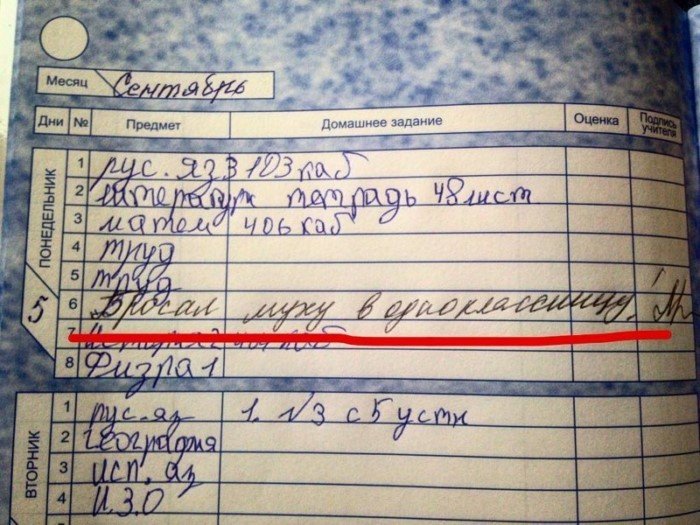 Месяц Сентябрь
Дни № Предмет Домашнее задание Оценка Подпись учителя
ПОНЕДЕЛЬНИК
5
1 рус. яз 3 103 каб
2 литература тетрадь 48 лист
3 матем 406 каб
4 труд
5 труд
6 Бросал муху в одноклассницу!
7 история каб
8 Физра 1
ВТОРНИК
1 рус. яз 1. √3 с 5 устн
2 география
3 исп. яз
4 И.З.О
5